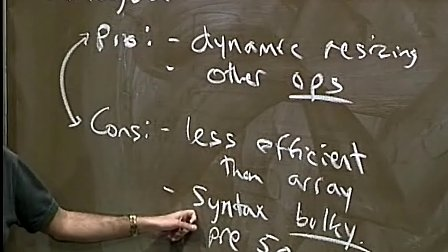 Pros: - dynamic resizing
- other ops
Cons: - less efficient
than array
- syntax bulky
pre